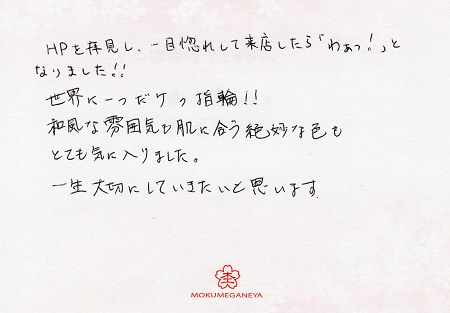 HPを拝見し、一目惚れして来店したら「わぁっ!」と
なりました!!
世界に一つだけの指輪!!
和風な雰囲気も肌に合う絶妙な色も
とても気に入りました。
一生大切にしていきたいと思います
MOKUMEGANEYA